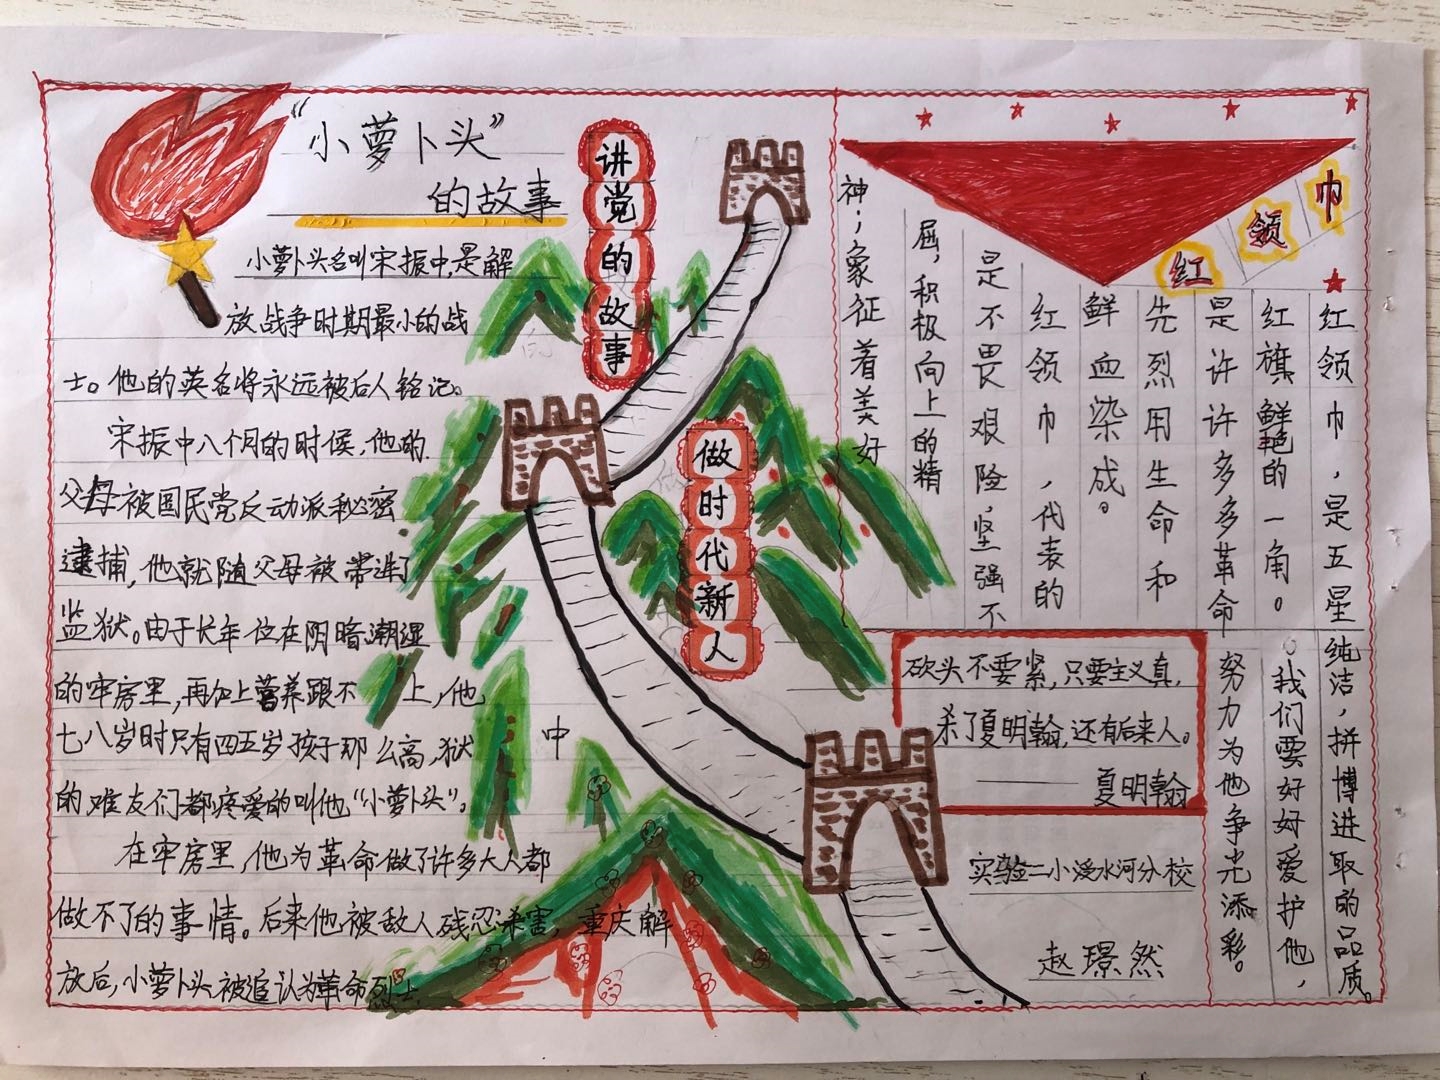 “小萝卜头”
的故事
小萝卜头名叫宋振中,是解
放战争时期最小的战
士。他的英名将永远被后人铭记。
宋振中八个月的时候,他的
父母被国民党反动派秘密
逮捕,他就随父母被带进了
监狱。由于长年位在阴暗潮湿
的牢房里,再加上营养跟不上,他
七八岁时只有四五岁孩子那么高,狱中
的难友们都疼爱的叫他“小萝卜头”。
在牢房里,他为革命做了许多大人都
做不了的事情。后来他被敌人残忍杀害,重庆解
放后,小萝卜头被追认为革命烈士.
讲党的故事
做时代新人
红领巾
红领巾,是五星
红旗鲜艳的一角。
是许许多多革命
先烈用生命和
鲜血染成。
红领巾,代表的
是不畏艰险,坚强不
屈,积极向上的精
神;象征着美好
纯洁,拼博进取的品质
。我们要好好爱护他,
努力为他争光添彩。
砍头不要紧,只要主义真,
杀了夏明翰,还有后来人。
——夏明翰
实验二小浸水河分校
赵璟然